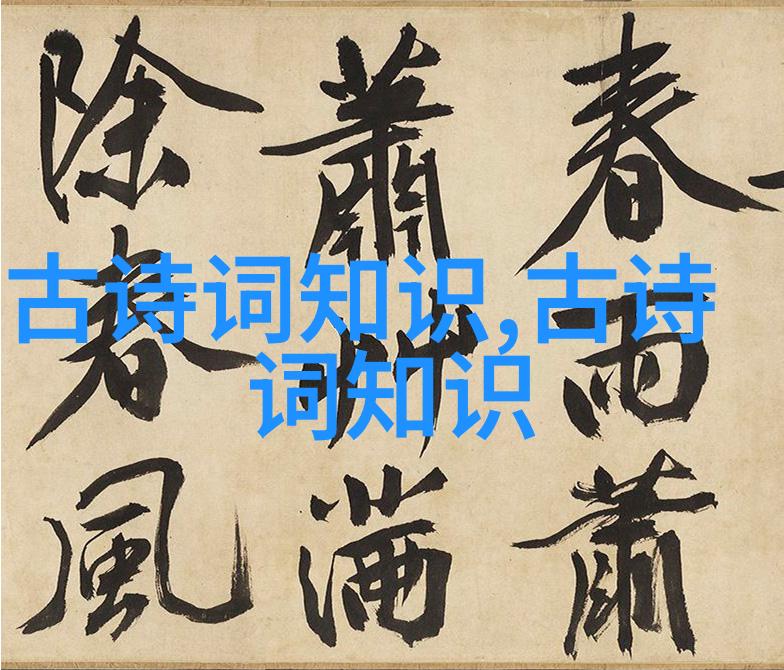 古诗词知识,古诗
词知识
春雨蕭
蕭艸滿
除春風